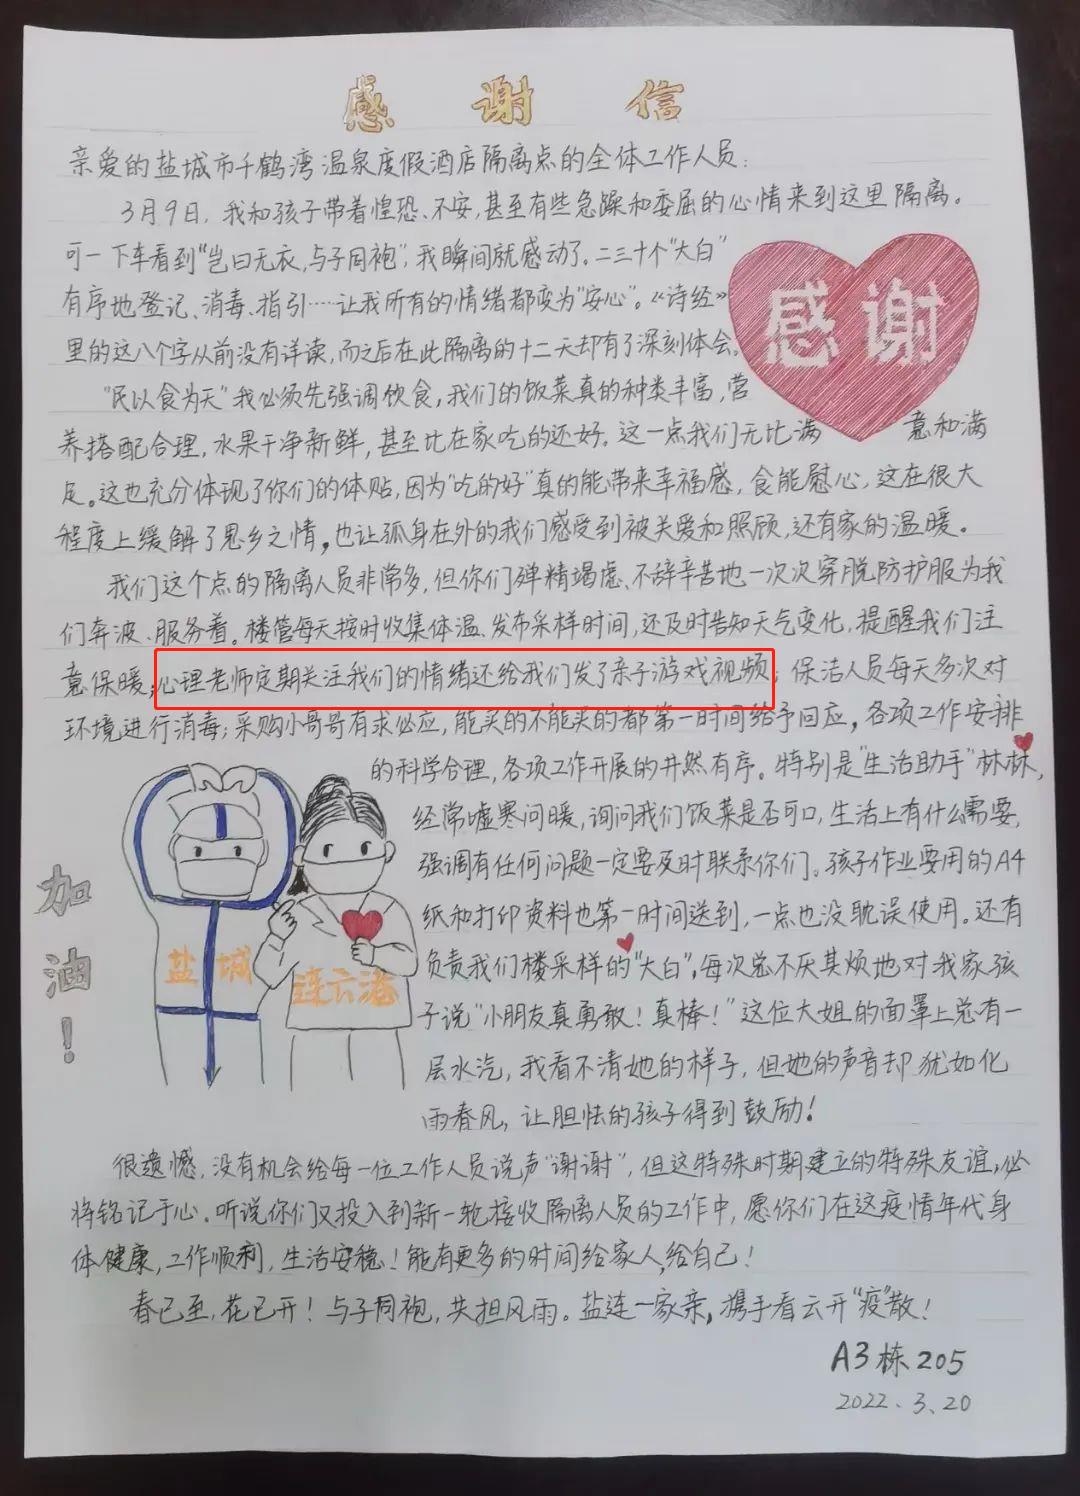 感谢信
亲爱的盐城市千鹤湾温泉度假酒店隔离点的全体工作人员：
3月9日，我和孩子带着惶恐、不安，甚至有些急躁和委屈的心情来到这里隔离。
可一下车看到“岂曰无衣，与子同袍”，我瞬间就感动了。二三十个“大白”
有序地登记、消毒、指引……让我所有的情绪都变为“安心”。《诗经》
里的这八个字从前没有详读，而之后在此隔离的十二天却有了深刻体会。
感谢
“民以食为天”我必须先强调饮食，我们的饭菜真的种类丰富，营
养搭配合理，水果干净新鲜，甚至比在家吃的还好。这一点我们无比满意和满
足。这也充分体现了你们的体贴，因为“吃的好”真的能带来幸福感，食能慰心，这在很大
程度上缓解了思乡之情，也让孤身在外的我们感受到被关爱和照顾，还有家的温暖。
我们这个点的隔离人员非常多，但你们殚精竭虑、不辞辛苦地一次次穿脱防护服为我
们奔波、服务着。楼管每天按时收集体温、发布采样时间，还及时告知天气变化，提醒我们注
意保暖；心理老师定期关注我们的情绪还给我们发了亲子游戏视频；保洁人员每天多次对
环境进行消毒；采购小哥哥有求必应，能买的不能买的都第一时间给予回应，各项工作安排
的科学合理，各项工作开展的井然有序。特别是“生活助手”林林，
经常嘘寒问暖，询问我们饭菜是否可口，生活上有什么需要，
强调有任何问题一定要及时联系你们。孩子作业要用的A4
纸和打印资料也第一时间送到，一点也没耽误使用。还有
负责我们楼采样的“大白”，每次总不厌其烦地对我家孩
子说“小朋友真勇敢！真棒！”这位大姐的面罩上总有一
层水汽，我看不清她的样子，但她的声音却犹如化
雨春风，让胆怯的孩子得到鼓励！
加油！
盐城
连云港
很遗憾，没有机会给每一位工作人员说声“谢谢”，但这特殊时期建立的特殊友谊，必
将铭记于心。听说你们又投入到新一轮接收隔离人员的工作中，愿你们在这疫情年代身
体健康，工作顺利，生活安稳！能有更多的时间给家人，给自己！
春已至，花已开！与子同袍，共担风雨。盐连一家亲，携手看云开“疫”散！
A3栋205
2022.3.20